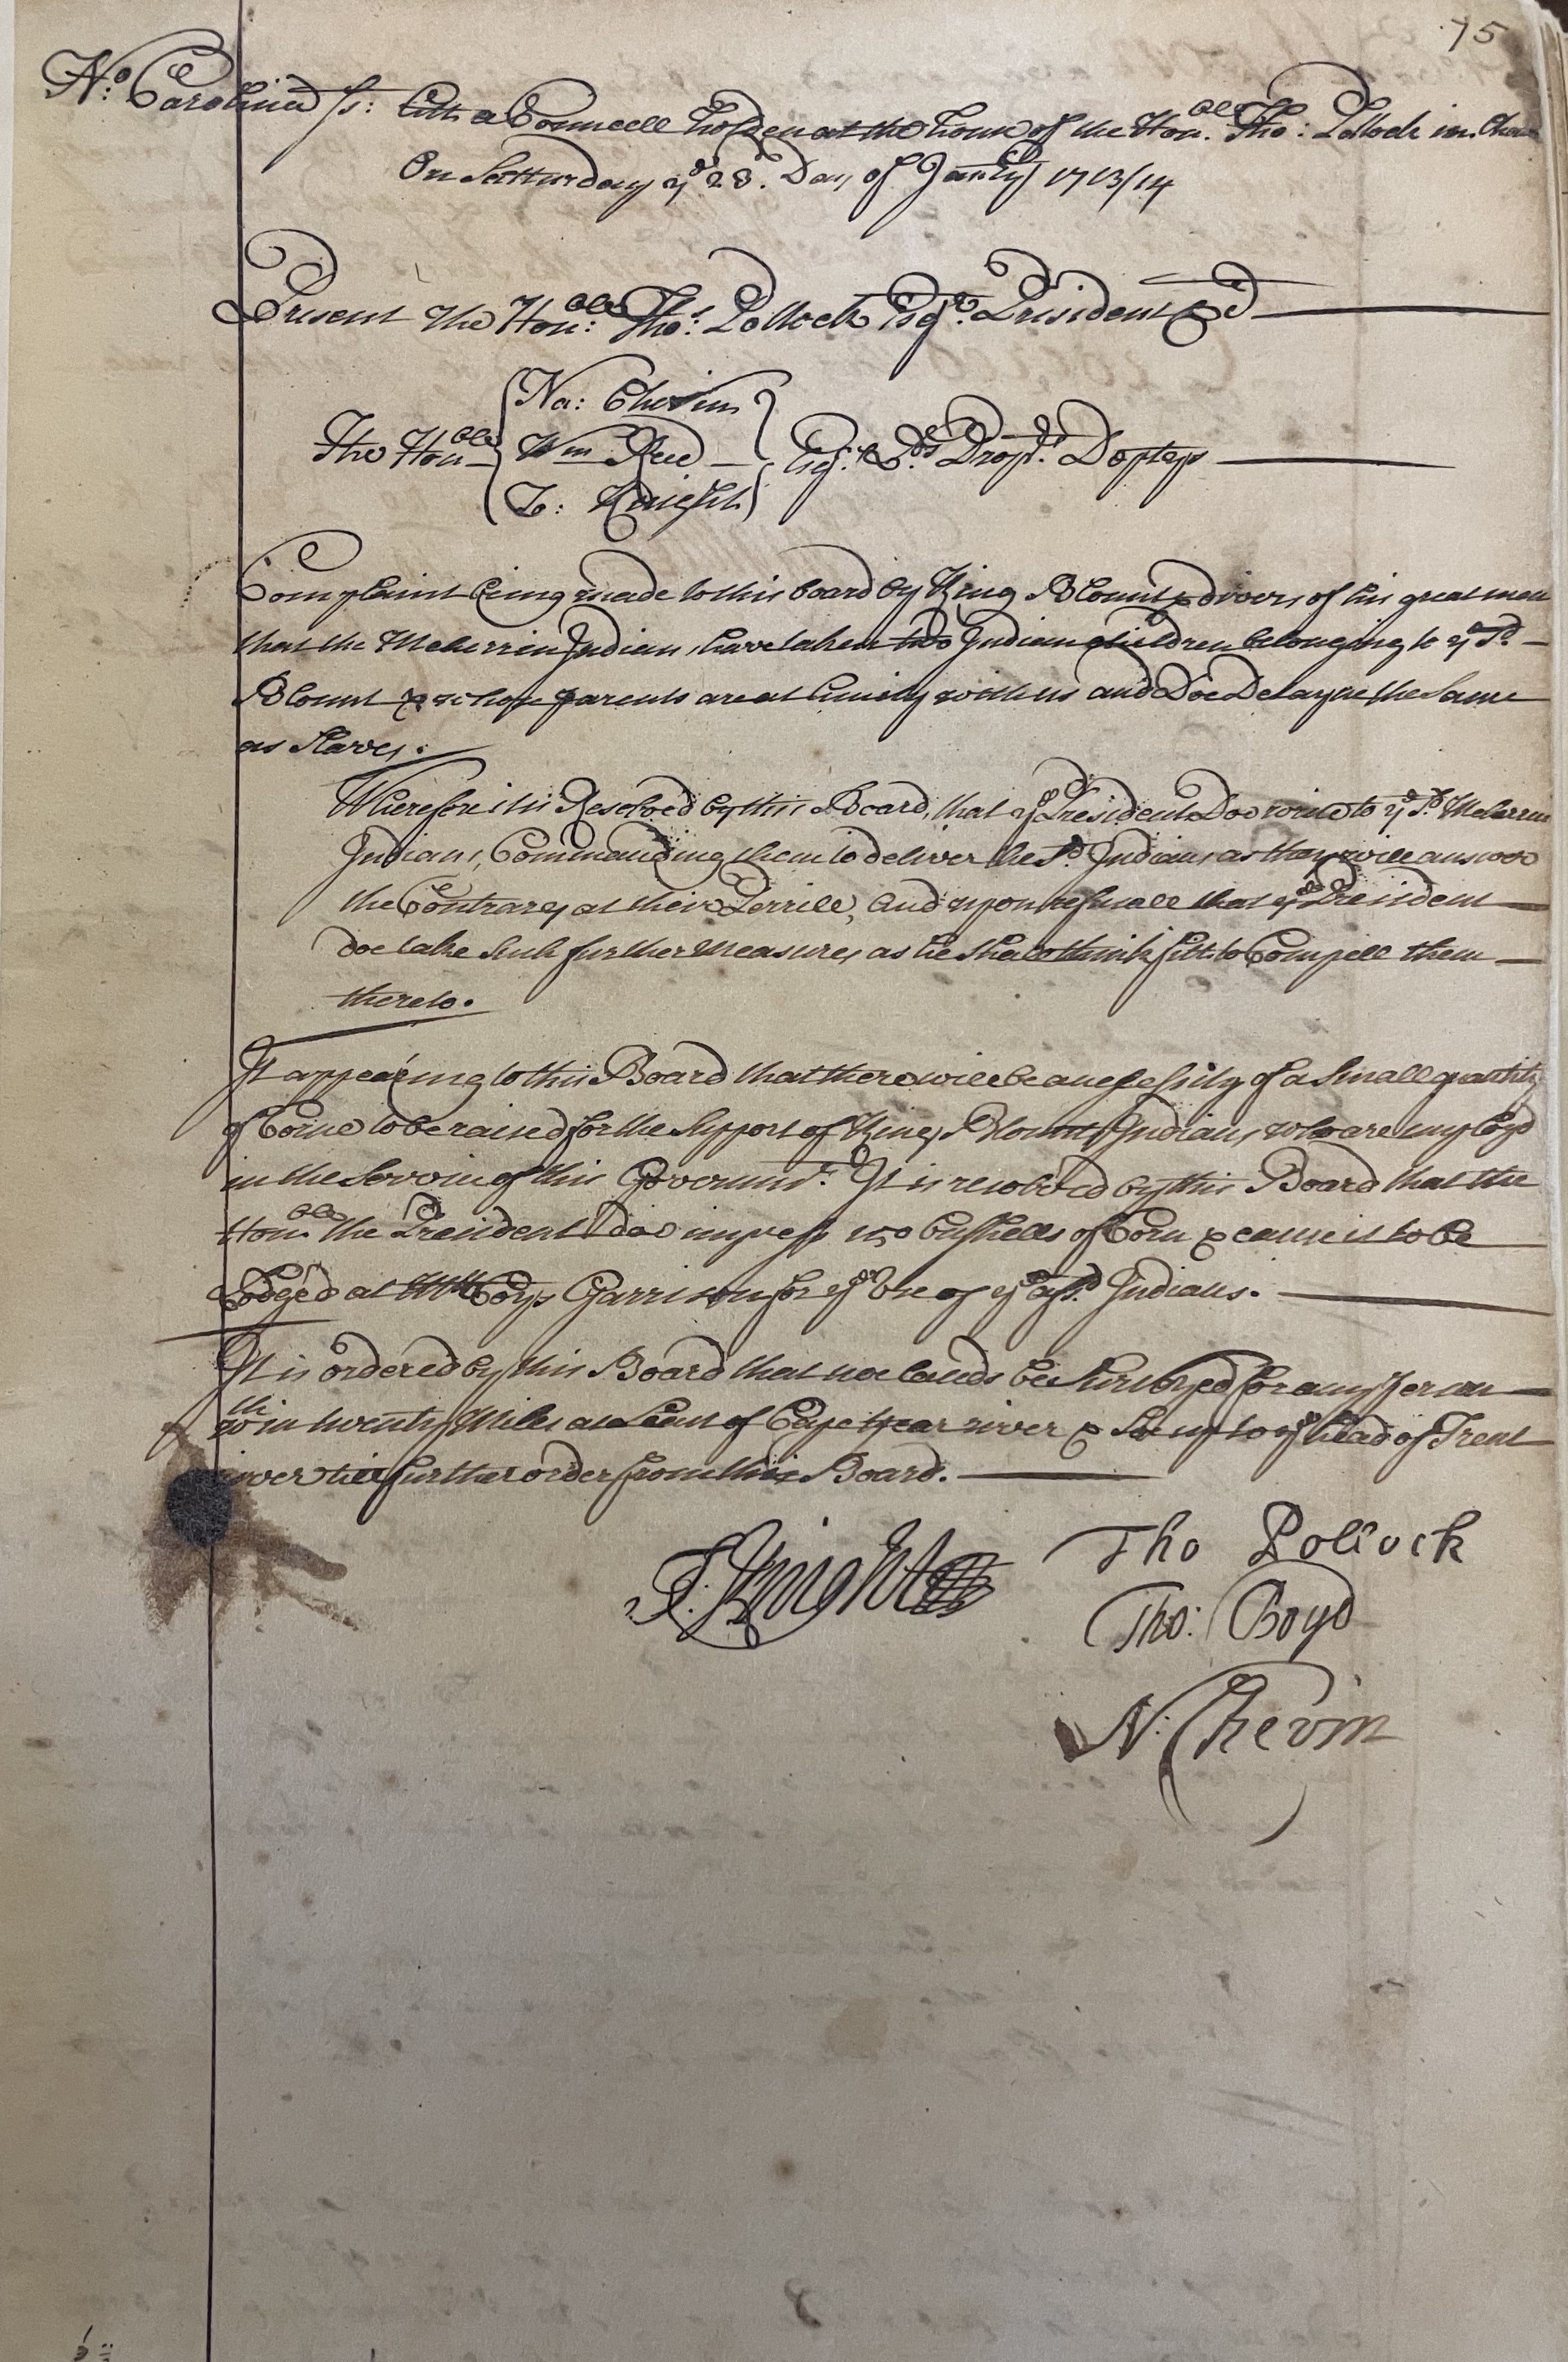 75
N.o Carolina ss: Att a Councell holden at the house of the Hon.ble Tho: Pollock in Chow
On Satturday ye 23.d Day of Jan.ry 1713/14
Present the Hon:ble Tho.s Pollock Esq.r President &c
Na: Chevin
The Hon.ble Wm. Reed Esq.rs L.ds Prop.rs Deptys
T: Knight
Complaint being made to this board by King Blount & divers of his great men
that the Meherrin Indians have taken two Indian children belonging to ye s.d
Blount & whose parents are at Amity with us and Doe Detayne the Same
as Slaves.
Wherefore it is Resolved by this Board, that ye President Doe write to ye s.d Meherrin
Indians, Commanding them to deliver the s.d Indians as they will answer
the Contrary at their Perrill, And upon refusall that ye President
doe take Such further Measures as he shall think fitt to Compell them
thereto.
It appearing to this Board that there will be a necessity of a Small quantity
of Corne to be raised for the Support of King Blounts Indians who are imployd
in the Service of this Governm.t It is resolved by this Board that the
Hon.ble the President doe impress 150 bushells of Corn & cause it to be
Lodged at Garrison for ye Use of ye afs.d Indians.
It is ordered by this Board that noe lands be Surveyed for any Person
wthin twenty Miles at Least of Cape Fear river & Soe up to ye head of Trent
river till further order from this Board.
T. Knight Tho Pollock
Tho: Boyd
N: Chevin